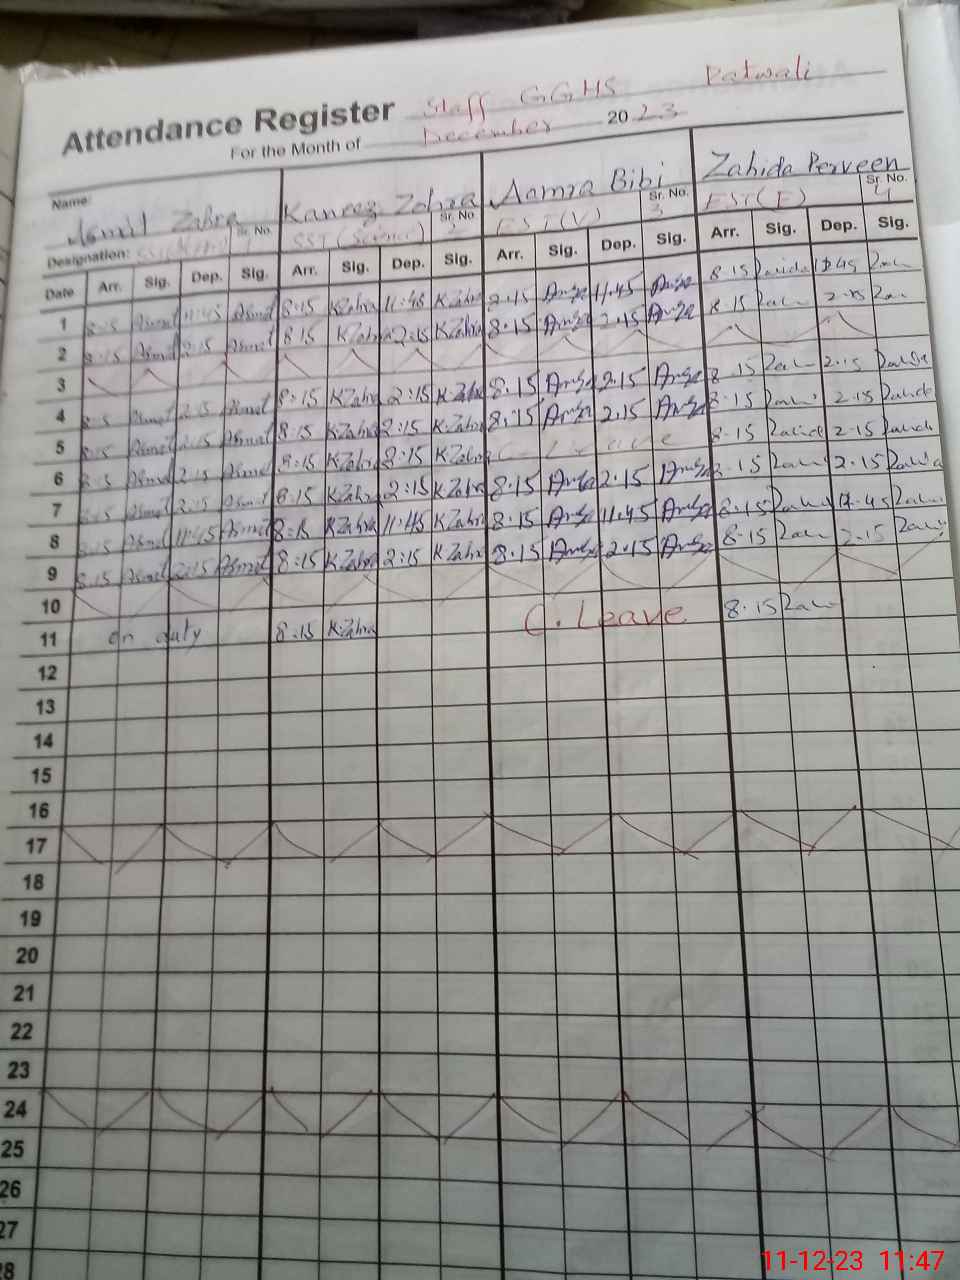 Attendance Register Staff GGHS Patwali
For the Month of December 2023
Name: Asmit Zahra Kaneez Zahra Aamra Bibi Zahida Perveen
Sr. No. Sr. No. 2 Sr. No. 3 Sr. No. 4
Designation: SST (Science) EST(V) EST(E)
Date Arr. Sig. Dep. Sig. Arr. Sig. Dep. Sig. Arr. Sig. Dep. Sig. Arr. Sig. Dep. Sig.
1 8:15 Asmat 11:45 Asmat 8:15 KZahra 11:45 KZahra 11.45 8.15
2 8:15 Asmat 2:15 Asmat 8:15 KZahra 2:15 KZahra 8.15 2.15 8.15 2.15
3
4 8:15 Asmat 2:15 Asmat 8:15 KZahra 2:15 KZahra 8.15 2.15 8.15 2.15
5 8:15 Asmat 2:15 Asmat 8:15 KZahra 2:15 KZahra 8.15 2.15 8.15 2.15
6 8:15 Asmat 2:15 Asmat 8:15 KZahra 8:15 KZahra C-Leave 8.15 2.15
7 8:15 Asmat 2:15 Asmat 8:15 KZahra 2:15 KZahra 8.15 2.15 2.15
8 8:15 Asmat 11:45 Asmat 8:15 KZahra 11:45 KZahra 8.15 11.45 8.15
9 8:15 Asmat 2:15 Asmat 8:15 KZahra 2:15 KZahra 8.15 2.15 8.15 2.15
10
11 on duty 8:15 KZahra C. Leave 8.15
12
13
14
15
16
17
18
19
20
21
22
23
24
25
26
27
28
11-12-23 11:47